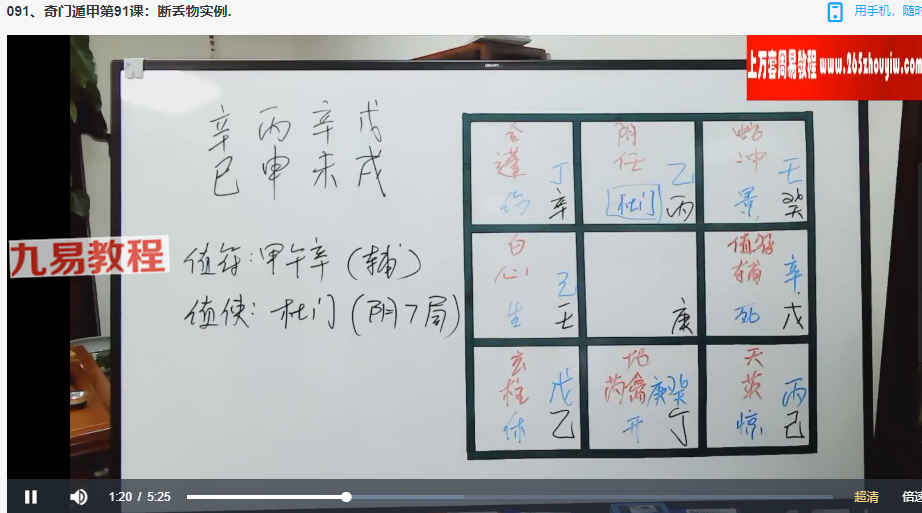 091、奇门遁甲第91课：断丢物实例.
用手机，随时
上万套周易教程 www.265zhouyiw.com
辛 丙 辛 戊
巳 申 未 戌
九易教程
值符：甲午辛（辅）
值使：杜门（阴7局）
合 阴 蛇
蓬 丁 任 乙 冲 壬
伤 辛 杜门 丙 景 癸
白 值符
心 己 辅 辛
生 壬 庚 死 戊
玄 地 天
柱 戊 芮禽 庚癸 英 丙
休 乙 开 丁 惊 己
1:20 / 5:25
超清
倍速